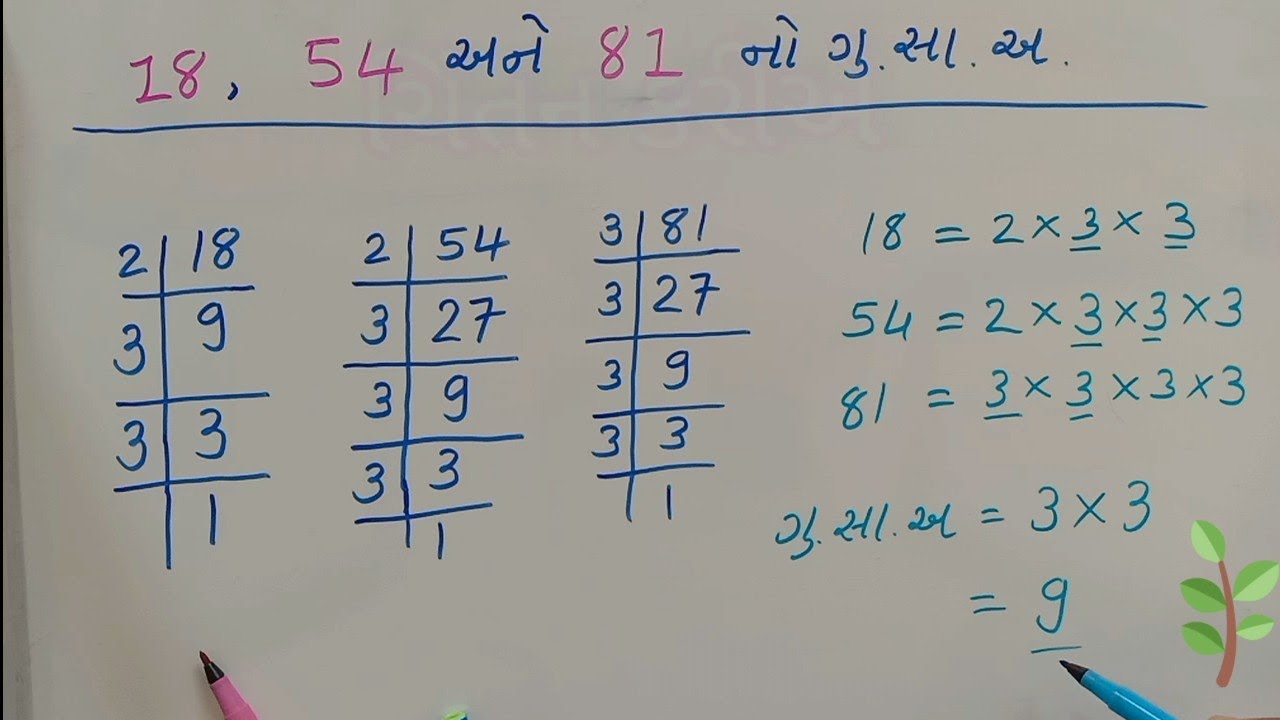 18, 54 અને 81 નો ગુ.સા.અ.
2 | 18
3 | 9
3 | 3
1
2 | 54
3 | 27
3 | 9
3 | 3
1
3 | 81
3 | 27
3 | 9
3 | 3
1
18 = 2 × 3 × 3
54 = 2 × 3 × 3 × 3
81 = 3 × 3 × 3 × 3
ગુ.સા.અ = 3 × 3
= 9